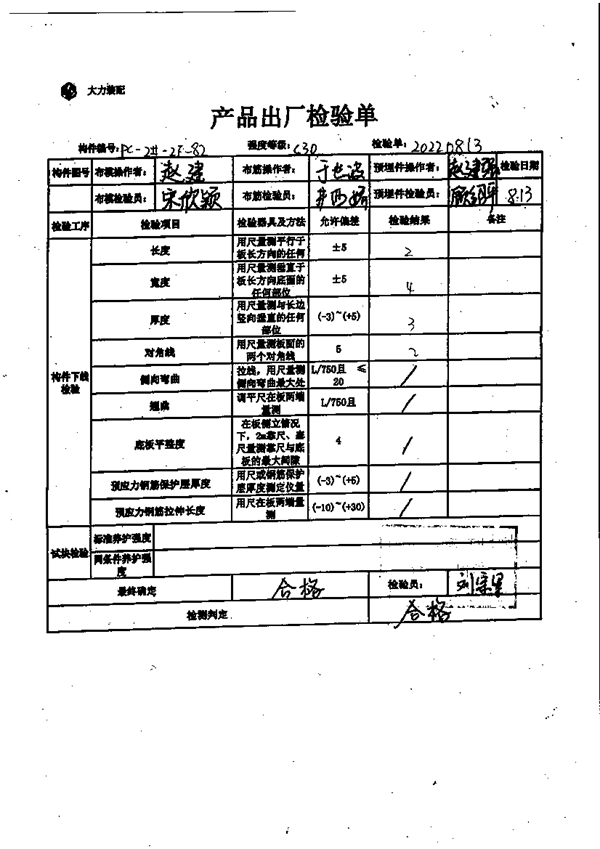 大力装配
产品出厂检验单
构件编号: PC-2#-2F-82 强度等级: C30 检验单: 20220813
构件图号 布模操作者: 赵建 布筋操作者: 预埋件操作者: 赵建强 检验日期
布模检验员: 宋欣颖 布筋检验员: 预埋件检验员: 8.13
检验工序 检验项目 检验器具及方法 允许偏差 检验结果 备注
构件下线检验
长度 用尺量测平行于板长方向的任何 ±5 2
宽度 用尺量测垂直于板长方向底面的任何部位 ±5 4
厚度 用尺量测与长边竖向垂直的任何部位 (-3)~(+5) 3
对角线 用尺量测板面的两个对角线 5 2
侧向弯曲 拉线,用尺量测侧向弯曲最大处 L/750且 ≤20 /
翘曲 调平尺在板两端量测 L/750且 /
底板平整度 在板侧立情况下,2m靠尺、塞尺量测靠尺与底板的最大间隙 4 /
预应力钢筋保护层厚度 用尺或钢筋保护层厚度测定仪量 (-3)~(+5) /
预应力钢筋拉伸长度 用尺在板两端量测 (-10)~(+30) /
试块检验 标准养护强度
同条件养护强度
最终确定 合格 检验员:
检测判定 合格